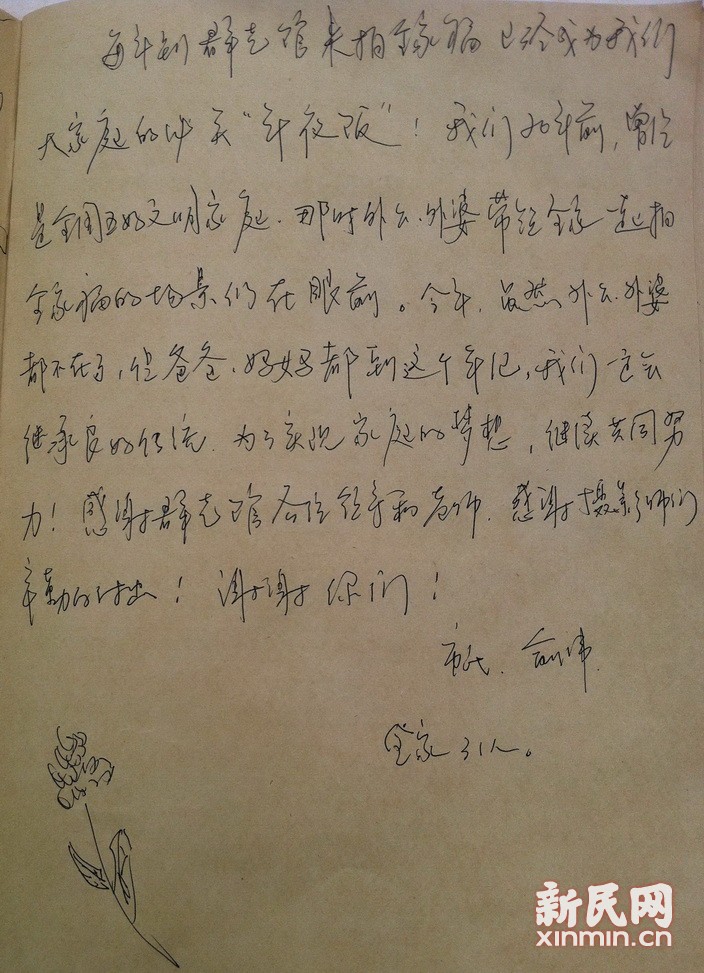 每年到群艺馆来拍全家福已经成为我们
大家庭的“年夜饭”！我们20年前，曾经
是全国五好文明家庭.那时外公.外婆带领全家一起拍
全家福的场景仍在眼前。今年,虽然外公.外婆
都不在了,但爸爸、妈妈都到这个年纪,我们会
继承良好传统.为了实现家庭的梦想,继续共同努
力！感谢群艺馆各位领导和老师.感谢摄影师们
辛勤的付出！谢谢你们！
市民.
全家31人。
新民网
xinmin.cn